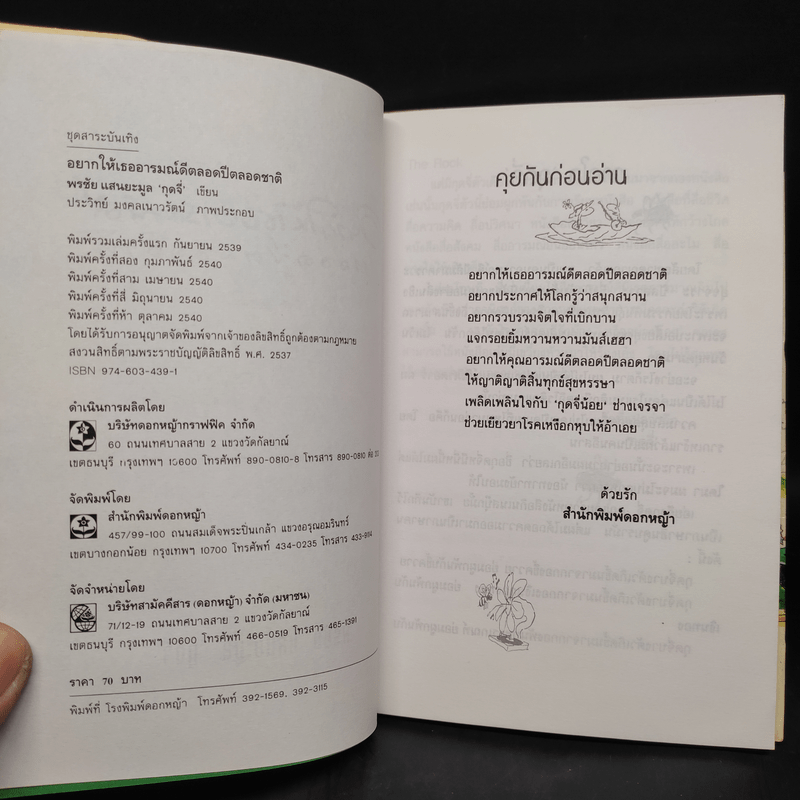 ชุดสาระบันเทิง
อยากให้เธออารมณ์ดีตลอดปีตลอดชาติ
พรชัย แสนยะมูล 'กุดจี่' เขียน
ประวิทย์ มงคลเนาวรัตน์ ภาพประกอบ
พิมพ์รวมเล่มครั้งแรก กันยายน 2539
พิมพ์ครั้งที่สอง กุมภาพันธ์ 2540
พิมพ์ครั้งที่สาม เมษายน 2540
พิมพ์ครั้งที่สี่ มิถุนายน 2540
พิมพ์ครั้งที่ห้า ตุลาคม 2540
โดยได้รับการอนุญาตจัดพิมพ์จากเจ้าของลิขสิทธิ์ถูกต้องตามกฎหมาย
สงวนสิทธิ์ตามพระราชบัญญัติลิขสิทธิ์ พ.ศ. 2537
ISBN 974-603-439-1
ดำเนินการผลิตโดย
บริษัทดอกหญ้ากราฟฟิค จำกัด
60 ถนนเทศบาลสาย 2 แขวงวัดกัลยาณ์
เขตธนบุรี กรุงเทพฯ 10600 โทรศัพท์ 890-0810-8 โทรสาร 890-0810 ต่อ
จัดพิมพ์โดย
สำนักพิมพ์ดอกหญ้า
457/99-100 ถนนสมเด็จพระปิ่นเกล้า แขวงอรุณอมรินทร์
เขตบางกอกน้อย กรุงเทพฯ 10700 โทรศัพท์ 434-0235 โทรสาร
จัดจำหน่ายโดย
บริษัทสามัคคีสาร (ดอกหญ้า) จำกัด (มหาชน)
71/12-19 ถนนเทศบาลสาย 2 แขวงวัดกัลยาณ์
เขตธนบุรี กรุงเทพฯ 10600 โทรศัพท์ 466-0519 โทรสาร 465-1391
ราคา 70 บาท
พิมพ์ที่ โรงพิมพ์ดอกหญ้า โทรศัพท์ 392-1569, 392-3115
คุยกันก่อนอ่าน
อยากให้เธออารมณ์ดีตลอดปีตลอดชาติ
อยากประกาศให้โลกรู้ว่าสนุกสนาน
อยากรวบรวมจิตใจที่เบิกบาน
แจกรอยยิ้มหวานหวานมันส์เฮฮา
อยากให้คุณอารมณ์ดีตลอดปีตลอดชาติ
ให้ญาติญาติสิ้นทุกข์สุขหรรษา
เพลิดเพลินใจกับ 'กุดจี่น้อย' ช่างเจรจา
ช่วยเยียวยาโรคเหงือกหุบให้อ้าเอย
ด้วยรัก
สำนักพิมพ์ดอกหญ้า